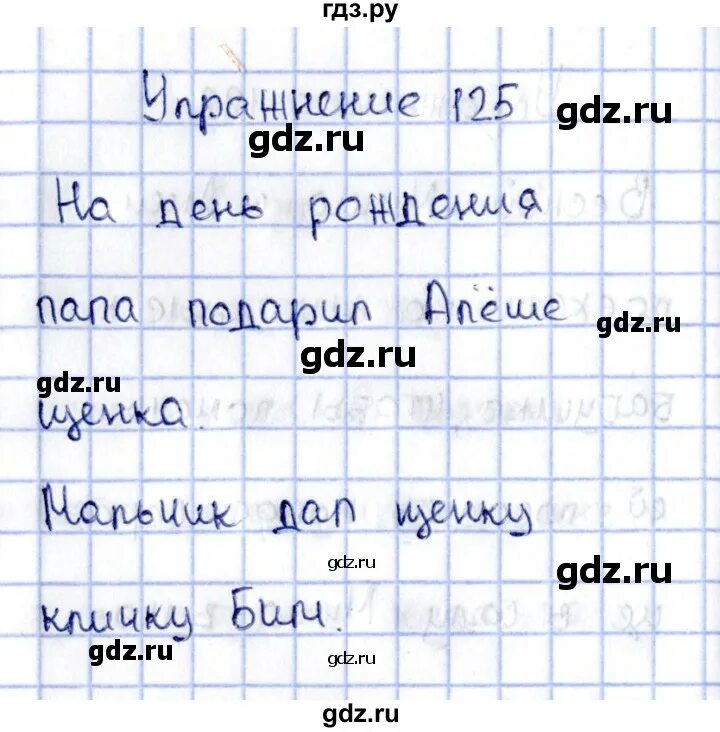 гдз.ру
Упражнение 125
gdz.ru
gdz.ru
На день рождения
папа подарил Алёше
gdz.ru
gdz.ru
gdz.ru
щенка.
Мальчик дал щенку
gdz.ru
gdz.ru
кличку Бим.
gdz.ru
gdz.ru
gdz.ru